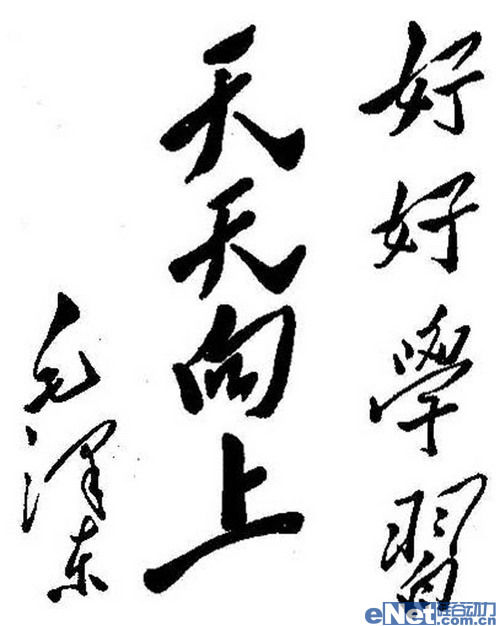 好好學習
天天向上
毛泽东
eNet硅谷动力
.com.cn